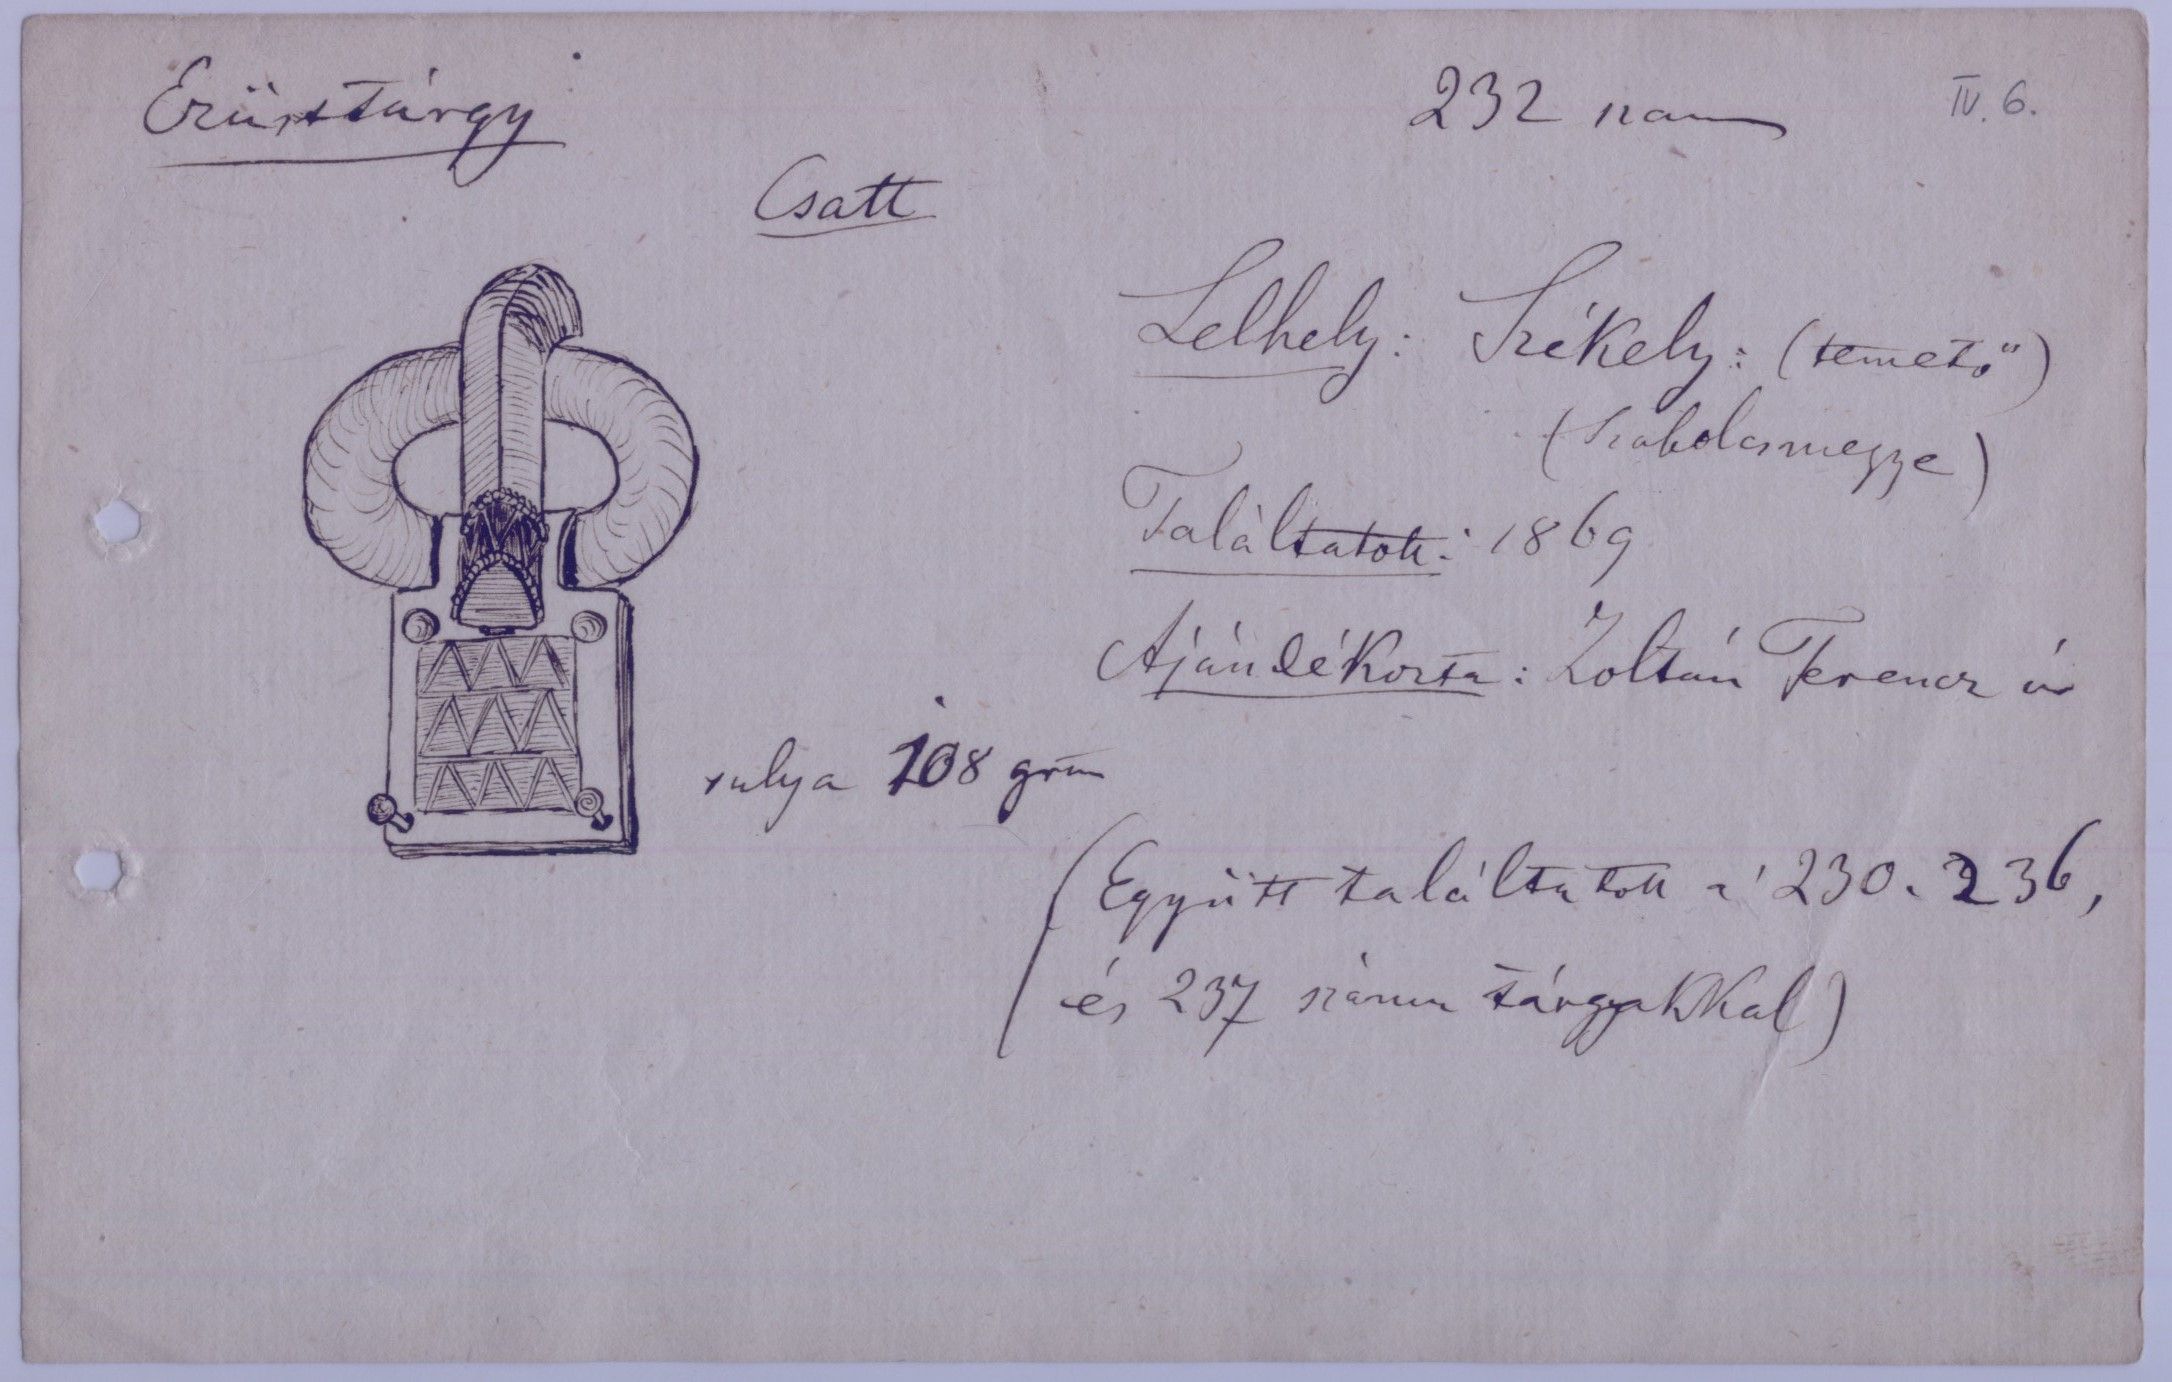 Ezüsttárgy
232 szam
IV. 6.
Csatt
Lelhely: Székely: (temető)
(Szabolcsmegye)
Találtatott: 1869
Ajándékozta: Zoltán Ferencz úr
sulya 108 grm
(Együtt találtatott a' 230. 236,
és 237 számu tárgyakkal)